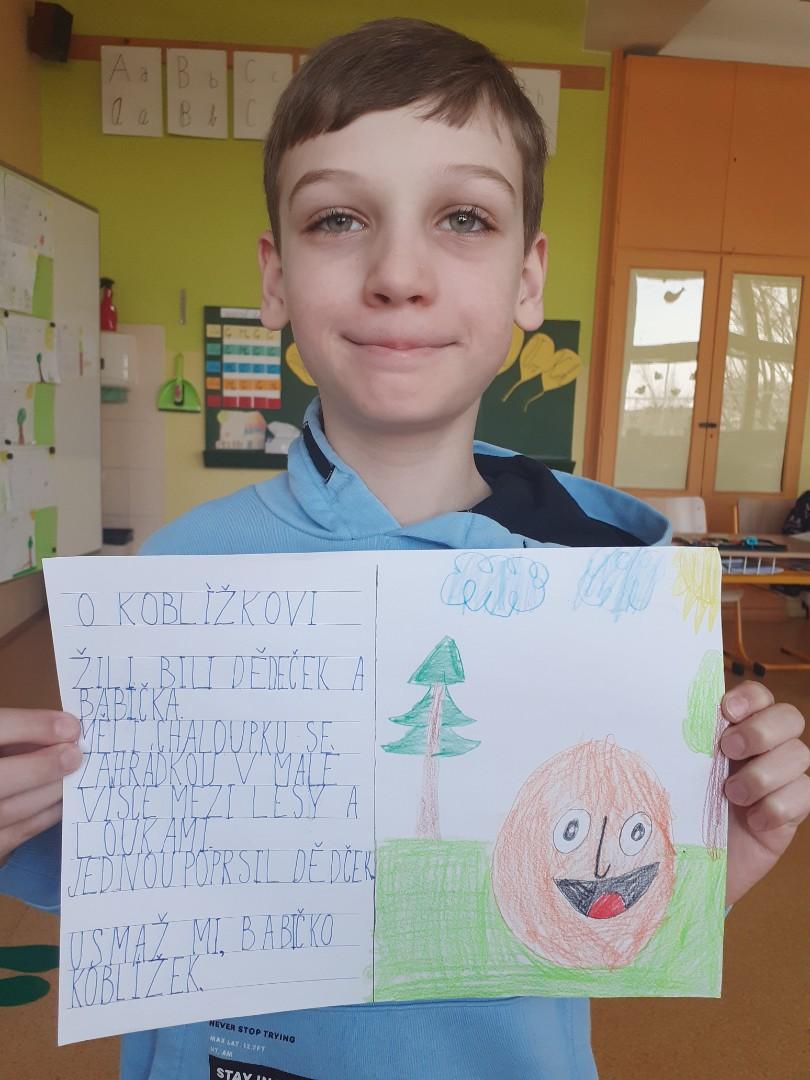 A a
A a
B b
B b
C c
C
O KOBLÌŽKOVI
ŽILI BILI DĚDEČEK A
BABIČKA.
MĚLI CHALOUPKU SE
ZAHRÁDKOU V MALÉ
VISCE MEZI LESY A
LOUKAMI.
JEDNOU POPRSIL DĚDČEK
USMAŽ MI, BABIČKO
KOBLÍŽEK.
NEVER STOP TRYING
STAY IN